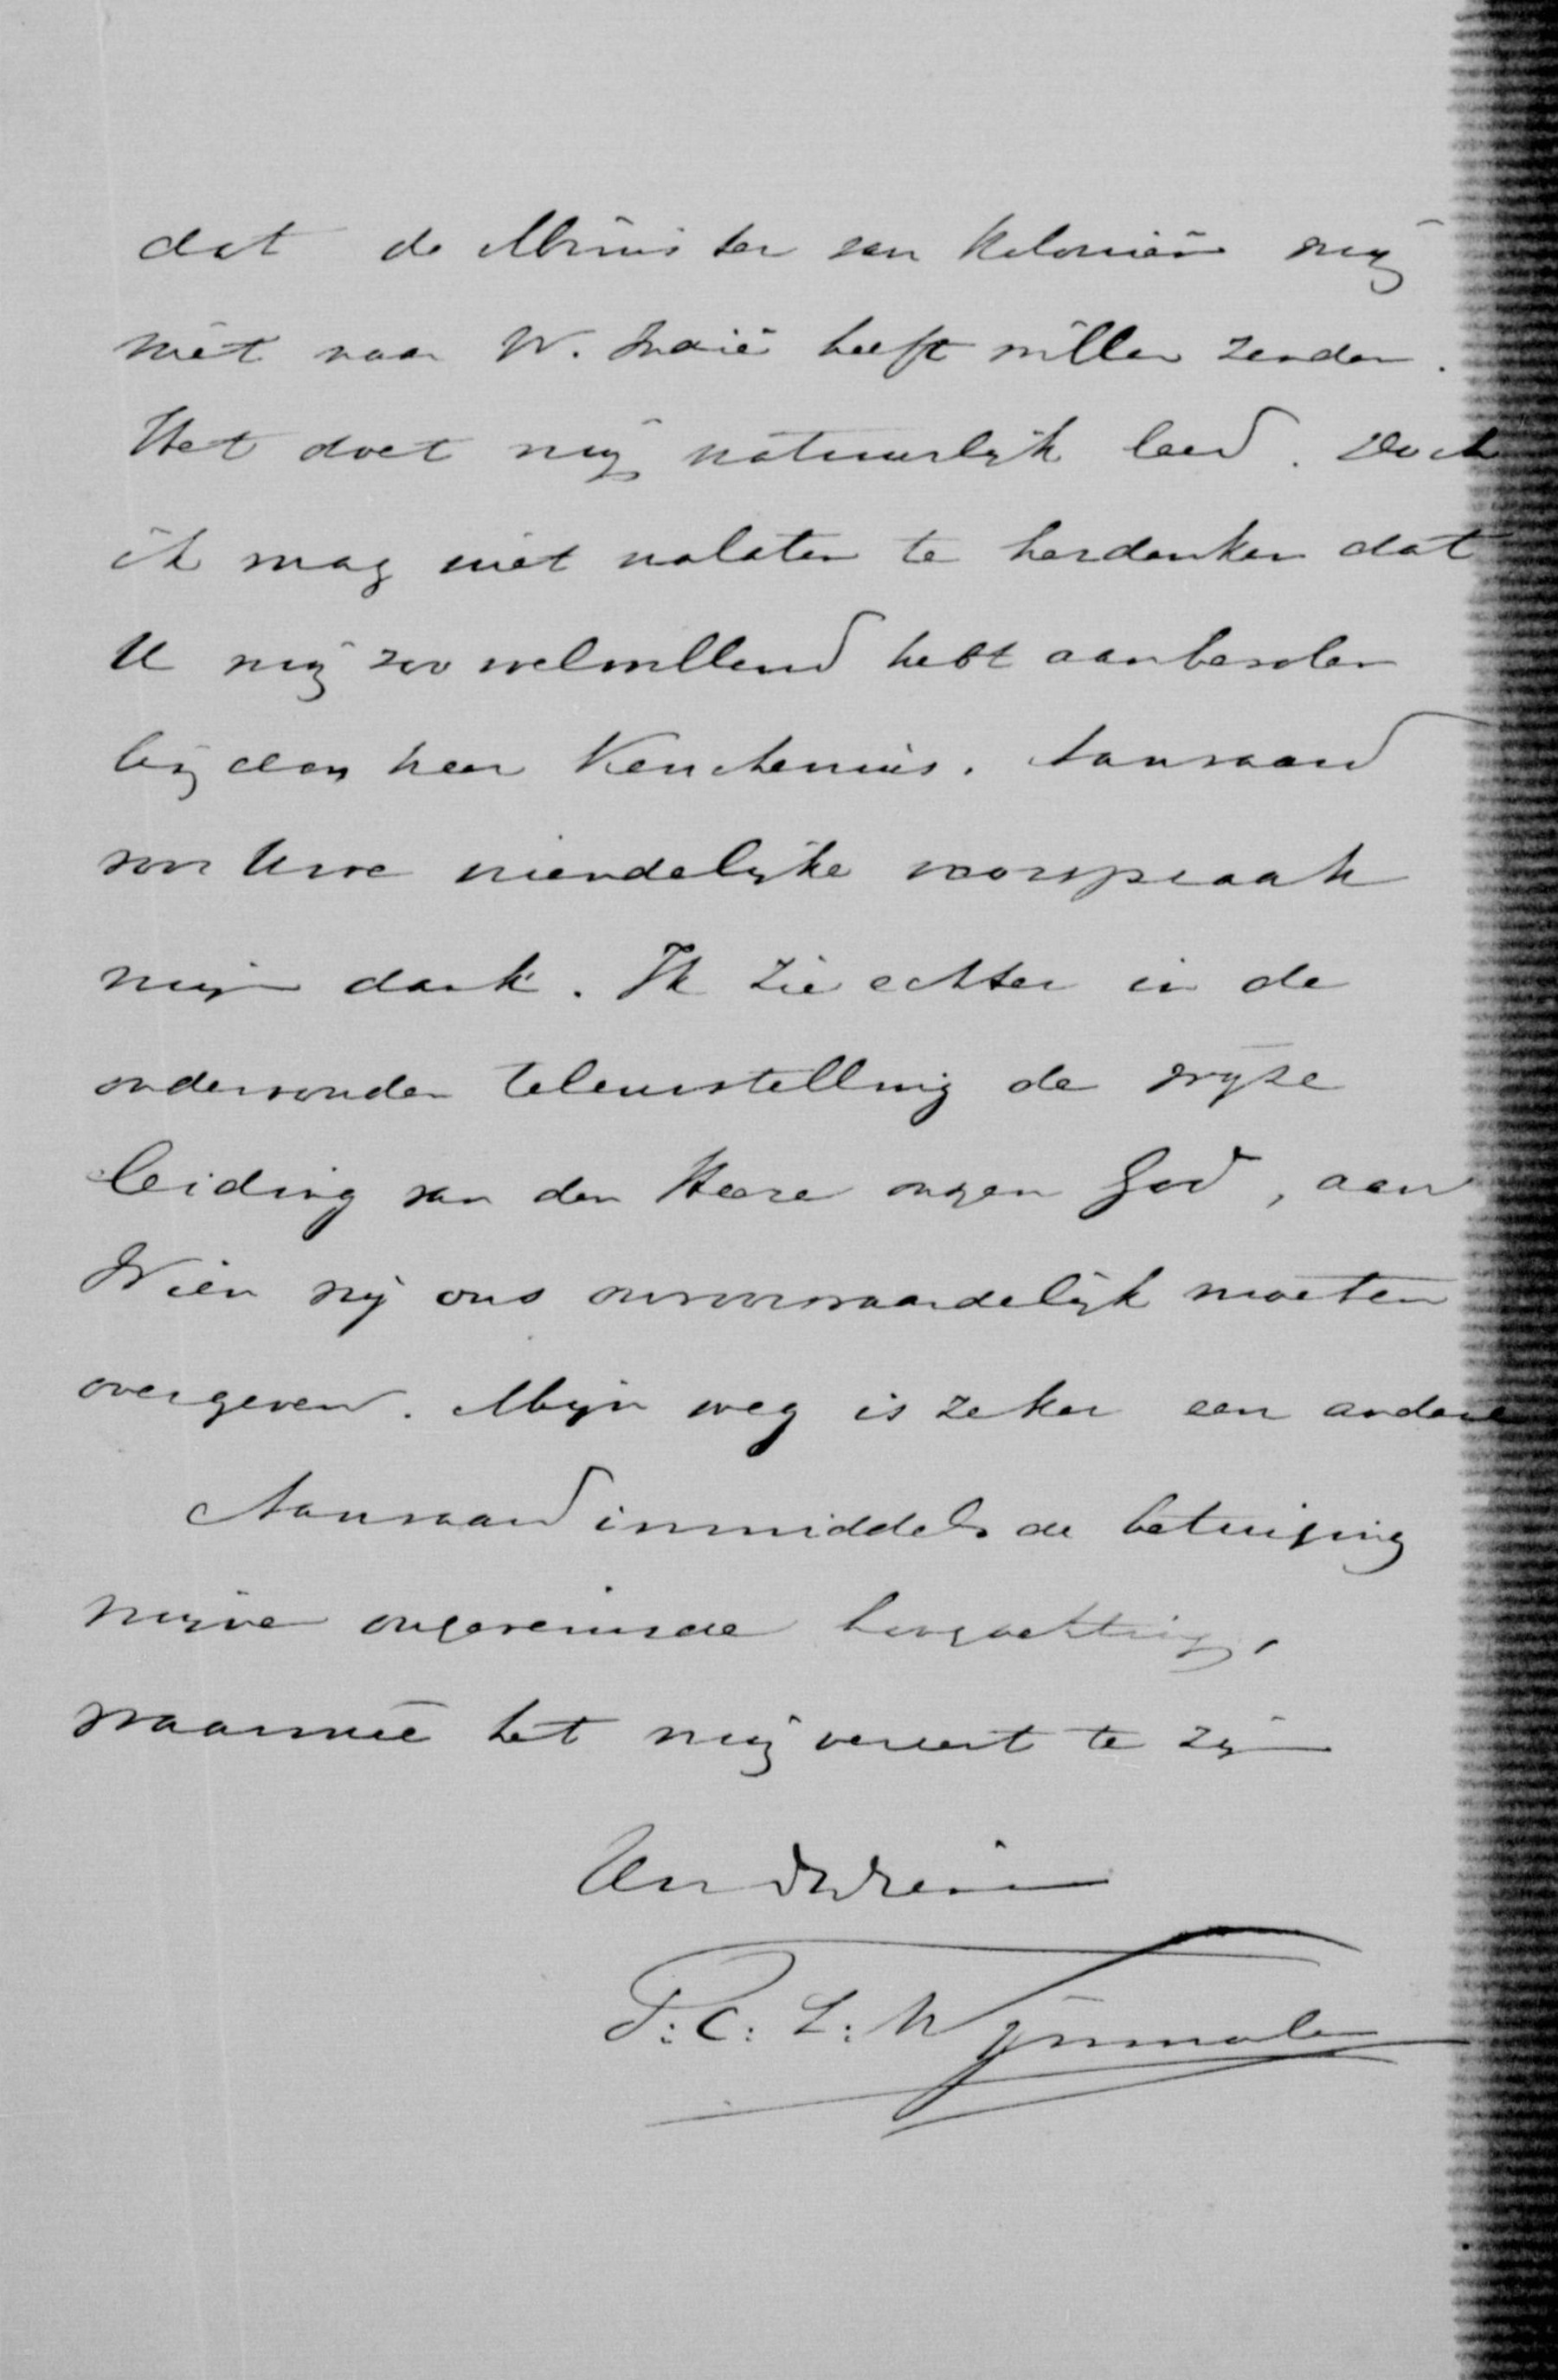 dat de Minister van Koloniën mij
niet naar W. Indië heeft willen zenden.
Het doet mij natuurlijk leed. Doch
ik mag niet nalaten te herdenken dat
U mij zoo welwillend hebt aanbevolen
bij den heer Keuchenius. Aanvaard
voor Uwe vriendelijke voorspraak
mijn dank. Ik zie echter in de
ondervonden teleurstelling de wijze
leiding van den Heere onzen God, aan
Wien wij ons onvoorwaardelijk moeten
overgeven. Mijn weg is zeker een andere
Aanvaard inmiddels de betuiging
mijner ongeveinsde hoogachting,
waarmeê het mij vereert te zijn
Uw dw dien
P. C. L. Wijnmalen